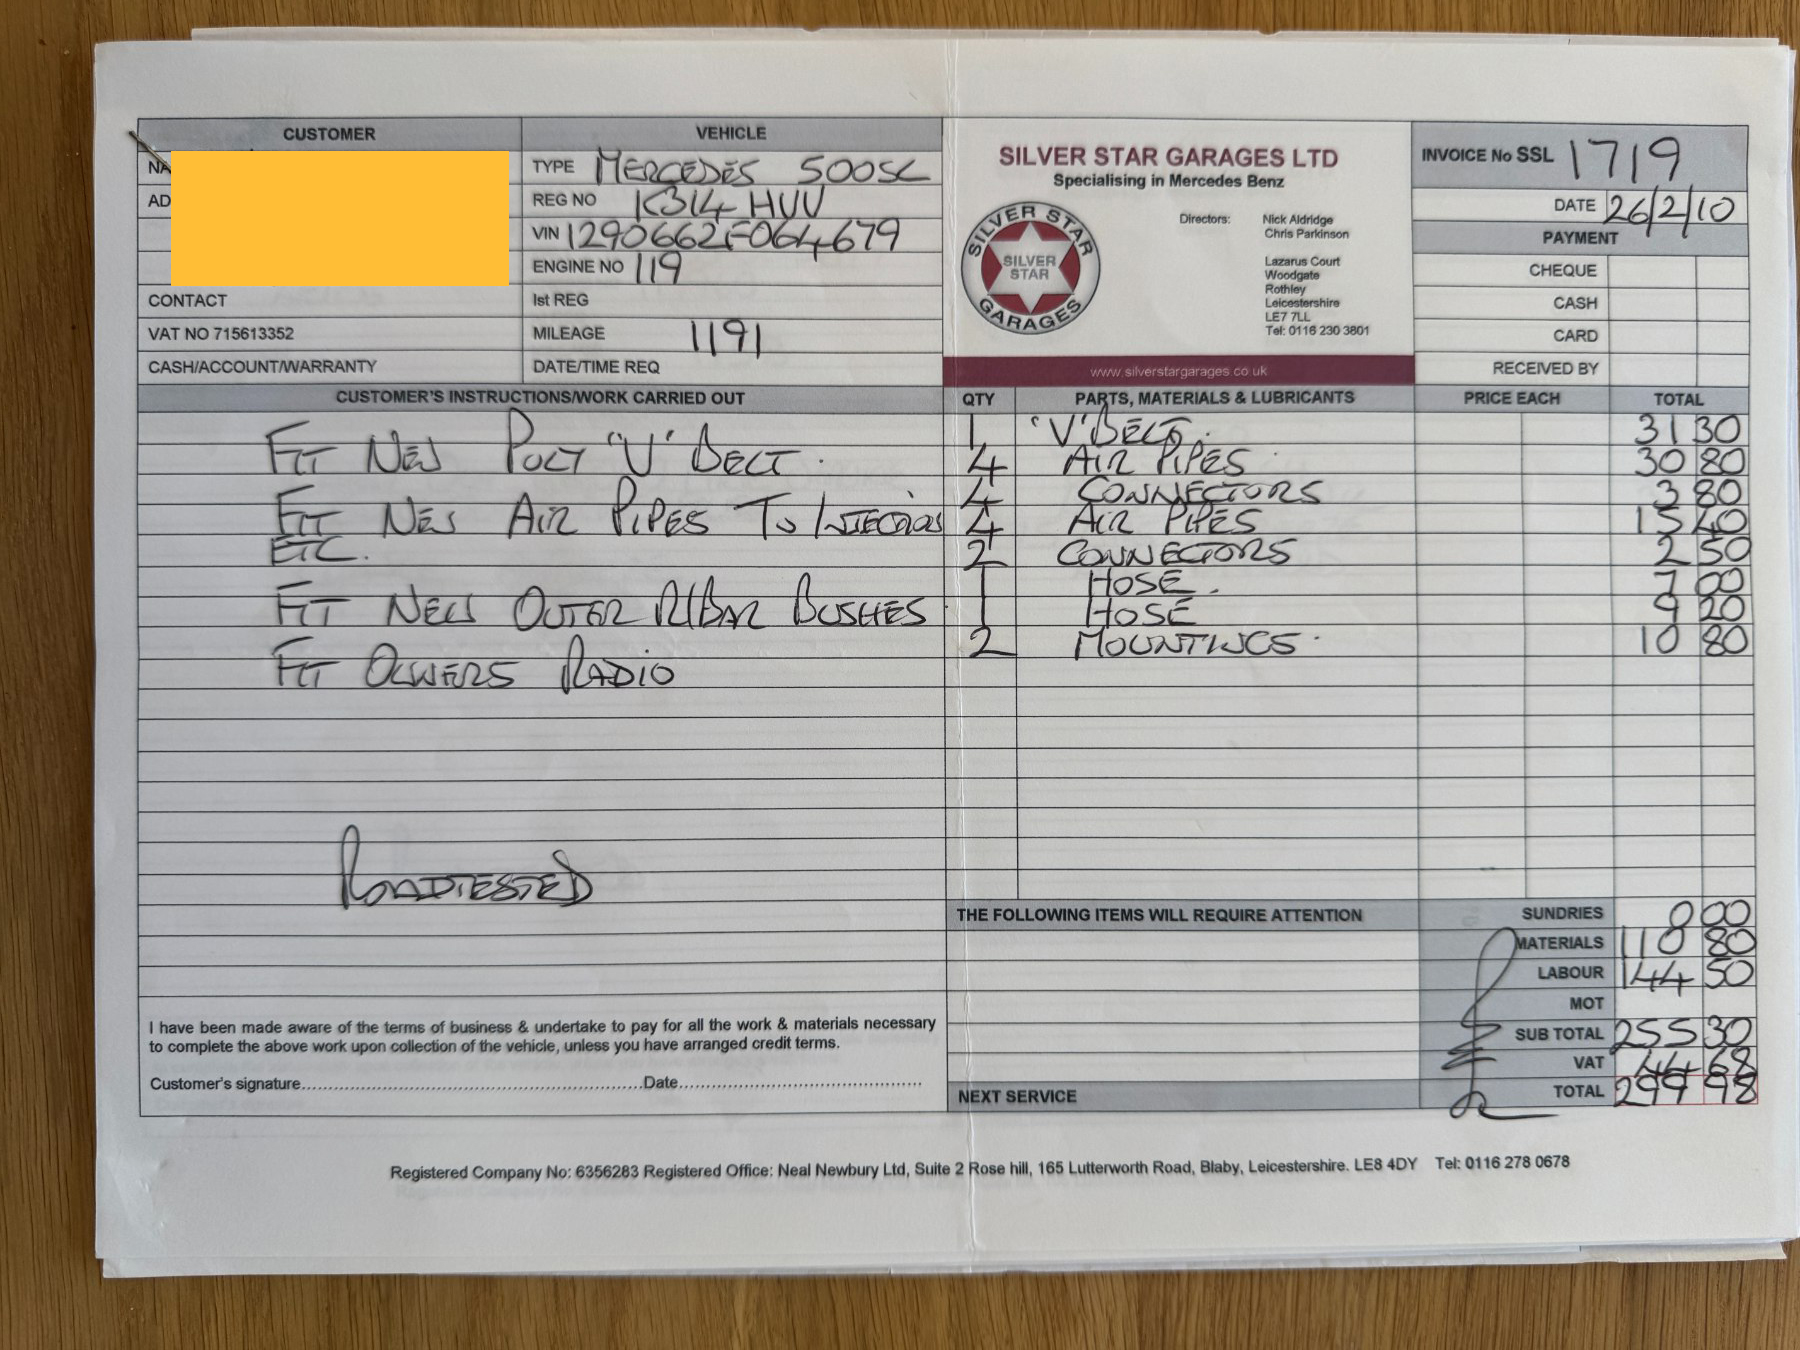 CUSTOMER
NA
AD
CONTACT
VAT NO 715613352
CASH/ACCOUNT/WARRANTY
VEHICLE
TYPE MERCEDES 500SL
REG NO K314 HVV
VIN 1290662F064679
ENGINE NO 119
Ist REG
MILEAGE 1191
DATE/TIME REQ
SILVER STAR GARAGES LTD
Specialising in Mercedes Benz
SILVER STAR
SILVER
STAR
GARAGES
Directors: Nick Aldridge
Chris Parkinson
Lazarus Court
Woodgate
Rothley
Leicestershire
LE7 7LL
Tel: 0116 230 3801
www.silverstargarages.co.uk
INVOICE No SSL 1719
DATE 26/2/10
PAYMENT
CHEQUE
CASH
CARD
RECEIVED BY
CUSTOMER'S INSTRUCTIONS/WORK CARRIED OUT
FIT NEW POLY "V" BELT.
FIT NEW AIR PIPES TO INJECTORS
ETC.
FIT NEW OUTER R/BAR BUSHES
FIT OWNERS RADIO
ROADTESTED
QTY PARTS, MATERIALS & LUBRICANTS PRICE EACH TOTAL
1 "V" BELT. 31 30
4 AIR PIPES 30 80
4 CONNECTORS 3 80
4 AIR PIPES 15 40
2 CONNECTORS 2 50
1 HOSE. 7 00
1 HOSE 9 20
2 MOUNTINGS. 10 80
THE FOLLOWING ITEMS WILL REQUIRE ATTENTION
NEXT SERVICE
SUNDRIES 0 00
MATERIALS 110 80
LABOUR 144 50
MOT
SUB TOTAL 255 30
VAT 44 68
TOTAL 299 98
I have been made aware of the terms of business & undertake to pay for all the work & materials necessary
to complete the above work upon collection of the vehicle, unless you have arranged credit terms.
Customer's signature Date
Registered Company No: 6356283 Registered Office: Neal Newbury Ltd, Suite 2 Rose hill, 165 Lutterworth Road, Blaby, Leicestershire. LE8 4DY Tel: 0116 278 0678